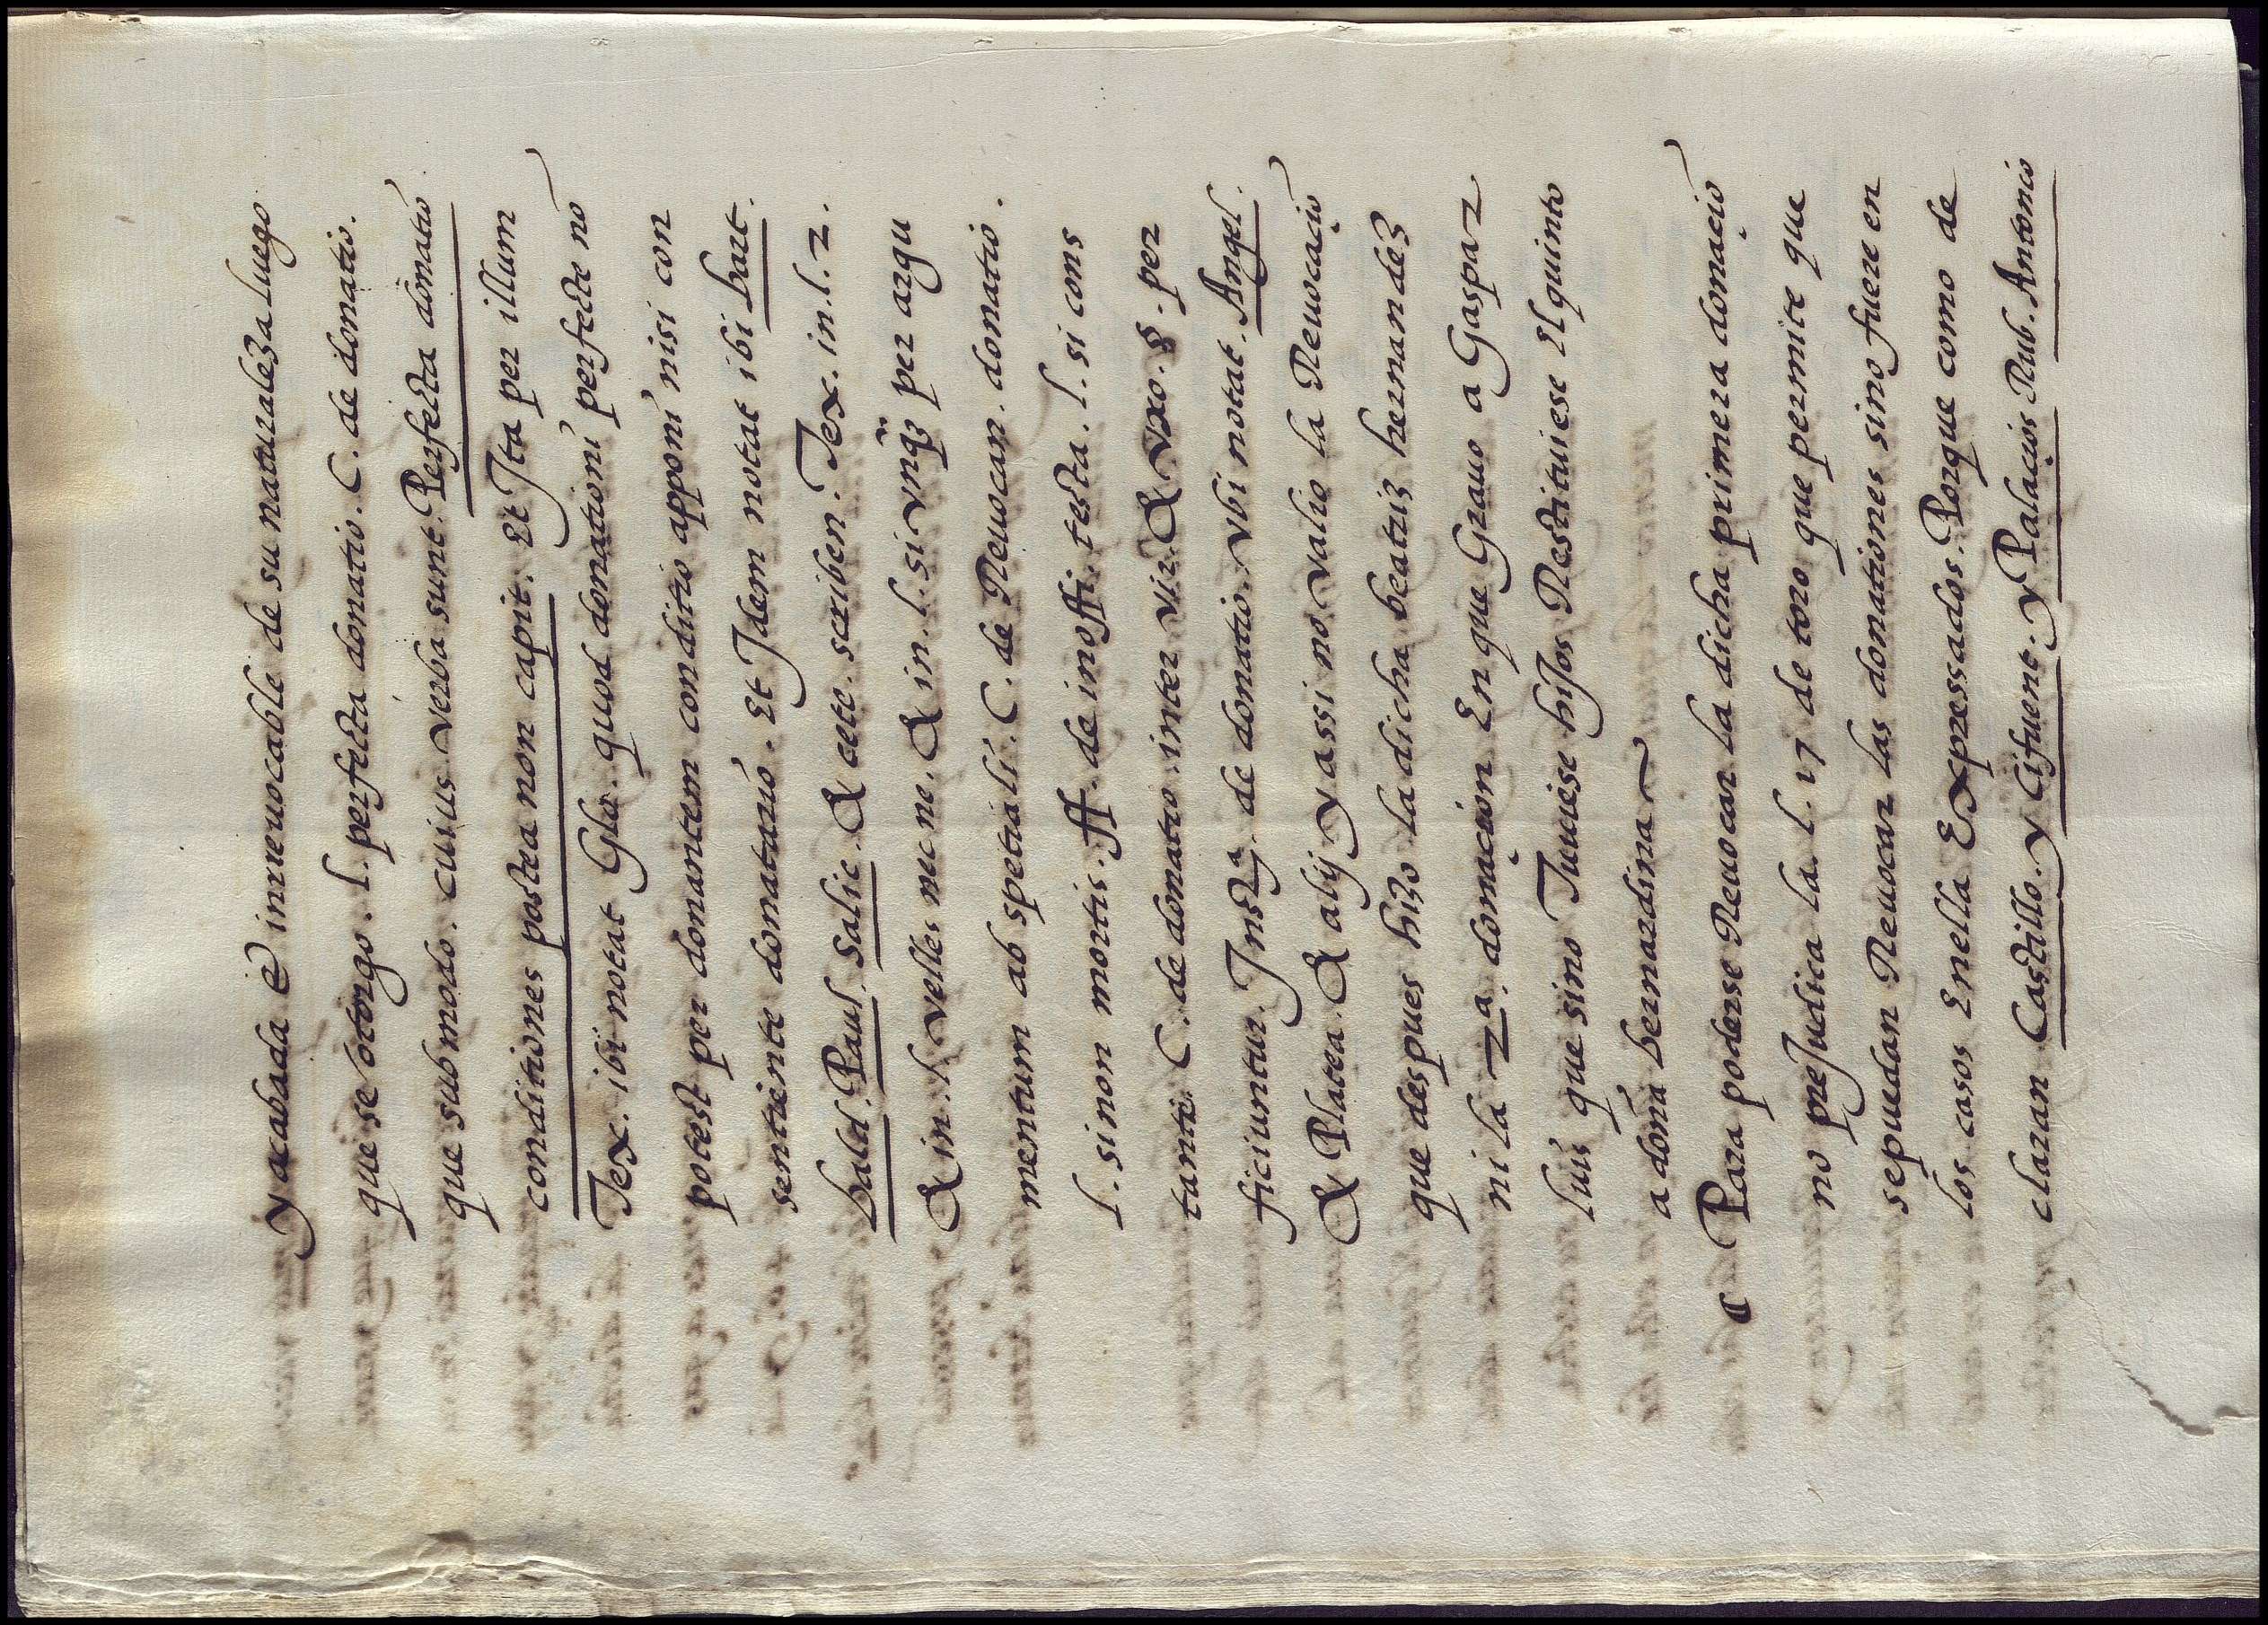 y acabada e inrreuocable de su naturaleza luego
que se otorgo. l. perfecta donatio. C. de donatio.
que sub modo. cuius verba sunt. Perfecta donatio
conditiones postea non capit. Et Ita per illum
Tex. ibi notat Glo. quod donationi perfecte nō
potest per donantem conditio apponi nisi con
sentiente donatario. Et Idem notat ibi bart.
bald. Paul. salic. & cete. scriben. Tex. in. l. 2.
& in. l. velles nec ne. & in. l. si vnqȝ per argu
mentum ab spetiali. C. de Reuocan. donatio.
l. si non mortis. ff. de inoffi. testa. l. si cons
tante. C. de donatio. inter vir. & vxo. §. per
ficiuntur. de donatio. vbi notat. Angel.
& Platea. & alij y assi no valio la Reuocaçiō
que despues hizo la dicha beatriz hernandez
ni la 2ª. donaçion En que Grauo a Gaspar
luis que sino Tuuiese hijos Restituiese El quinto
a doña bernardina
Para poderse Reuocar la dicha primera donaçiō
no preJudica la. l. 17 de toro que permite que
se puedan Reuocar las donationes sino fuere en
los casos Enella Expressados. Porque como de
claran Castillo. y Çifuent. y Palaçios Rub. Antonio